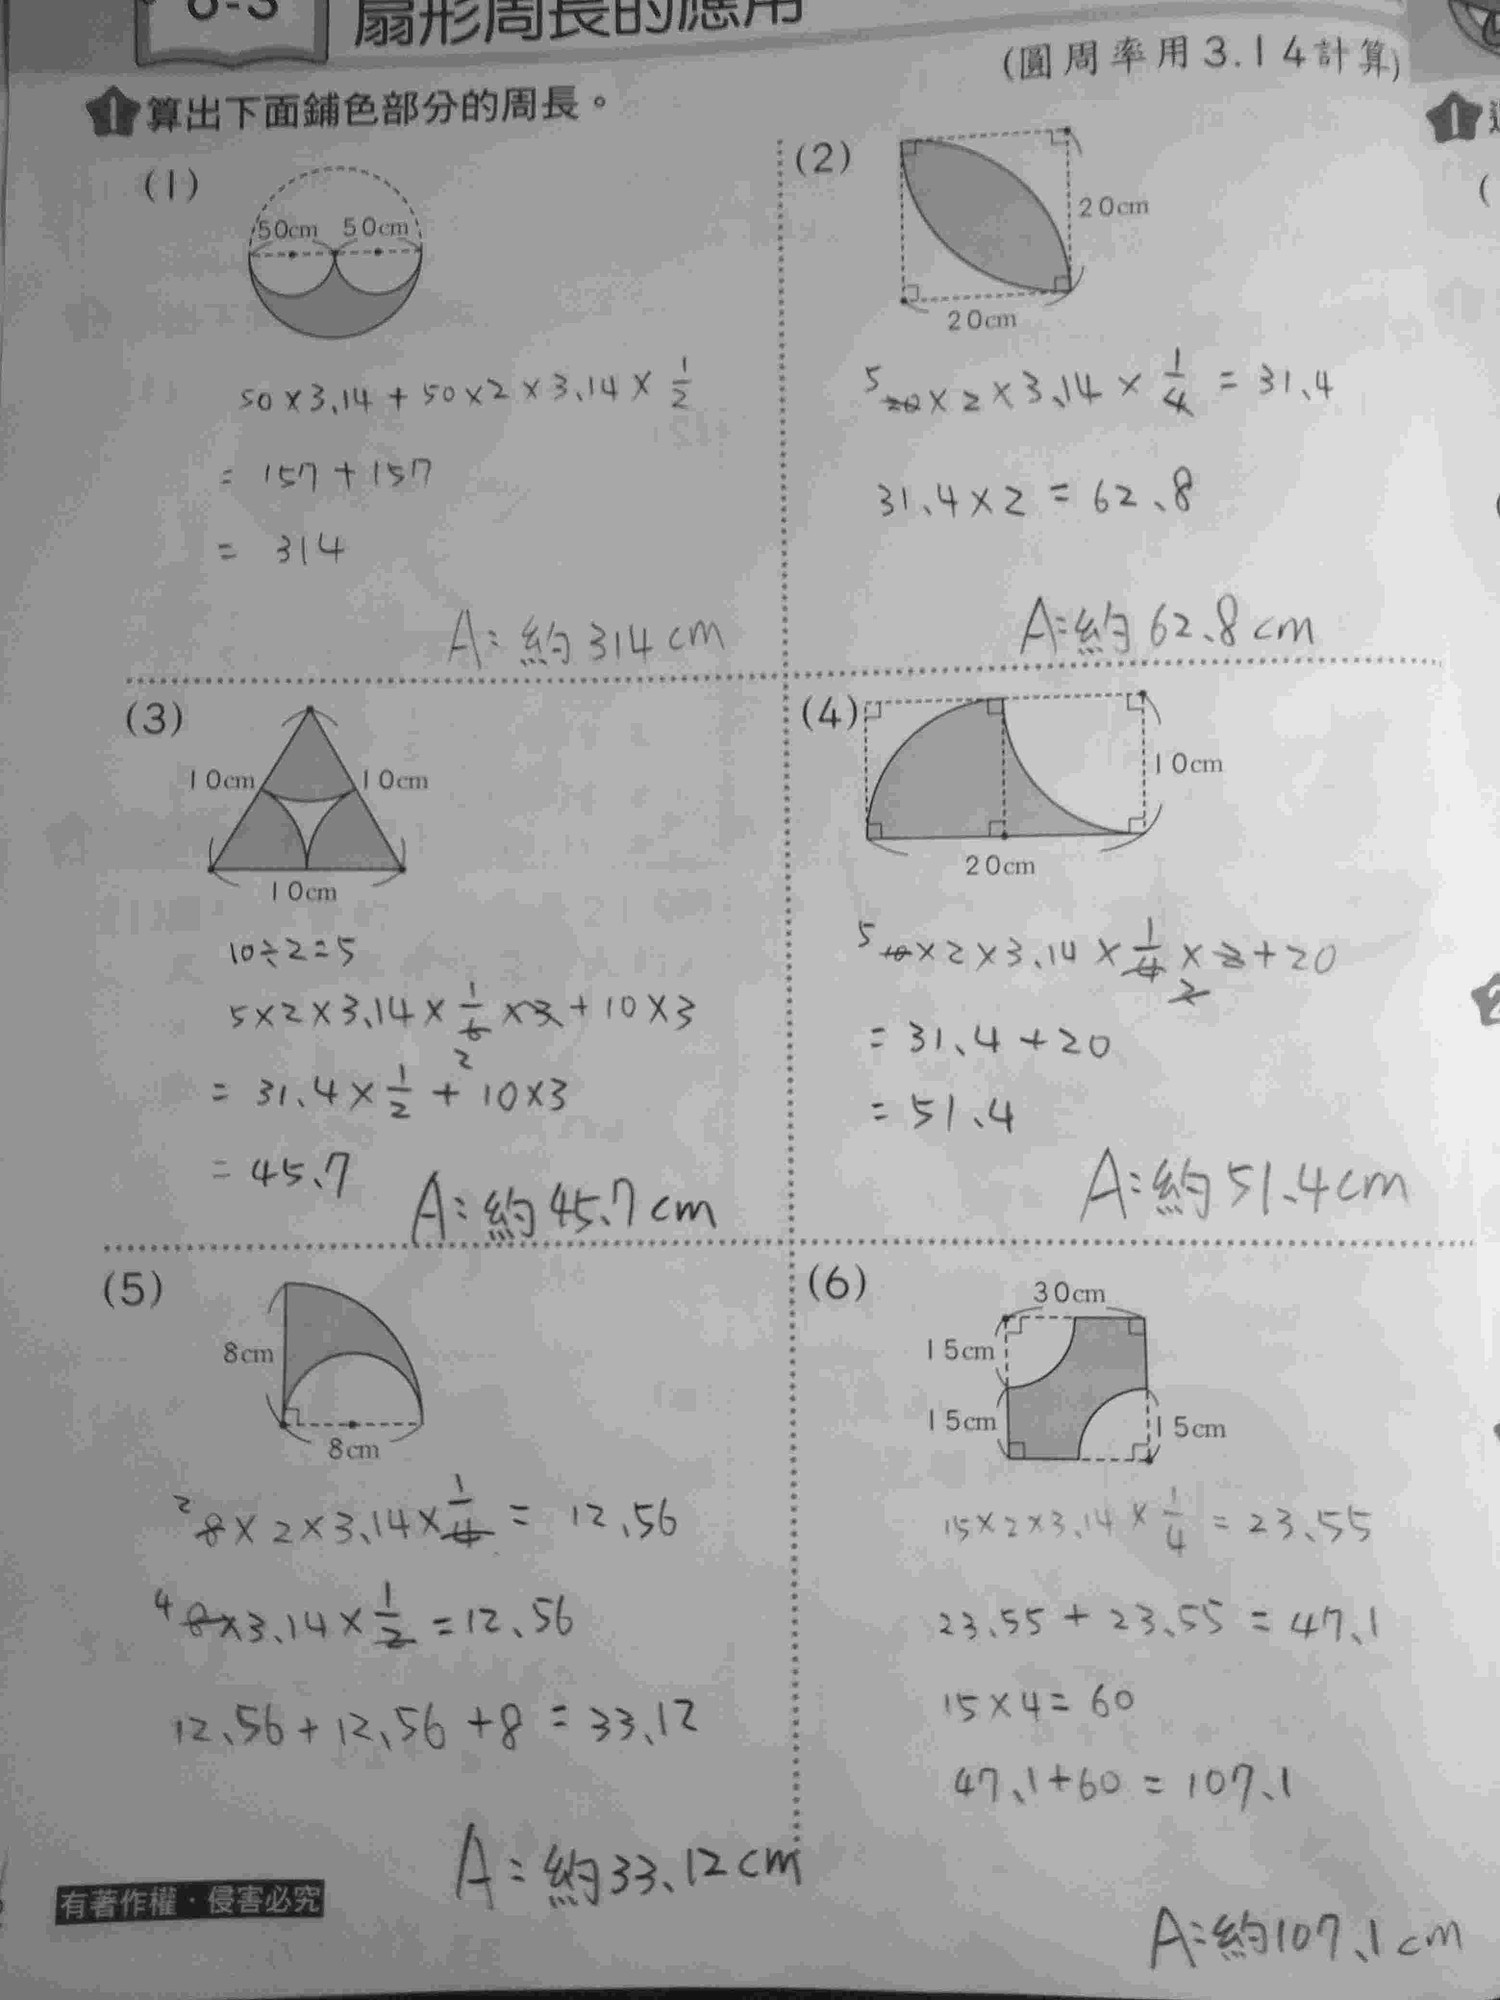 6-3 扇形周長的應用
(圓周率用3.14計算)
1 算出下面鋪色部分的周長。
(1)
50cm 50cm
50×3.14+50×2×3.14×1/2
= 157+157
= 314
A:約314cm
(2)
20cm
20cm
5 20×2×3.14×1/4 = 31.4
31.4×2 = 62.8
A:約62.8cm
(3)
10cm 10cm
10cm
10÷2=5
5×2×3.14×1/6×3+10×3
2
= 31.4×1/2+10×3
= 45.7
A:約45.7cm
(4)
10cm
20cm
5 10×2×3.14×1/4×2+20
2
= 31.4+20
= 51.4
A:約51.4cm
(5)
8cm
8cm
2 8×2×3.14×1/4 = 12.56
4 8×3.14×1/2 = 12.56
12.56+12.56+8 = 33.12
A:約33.12cm
(6)
30cm
15cm
15cm 15cm
15×2×3.14×1/4 = 23.55
23.55+23.55 = 47.1
15×4=60
47.1+60 = 107.1
A:約107.1cm
有著作權·侵害必究
1
(
2